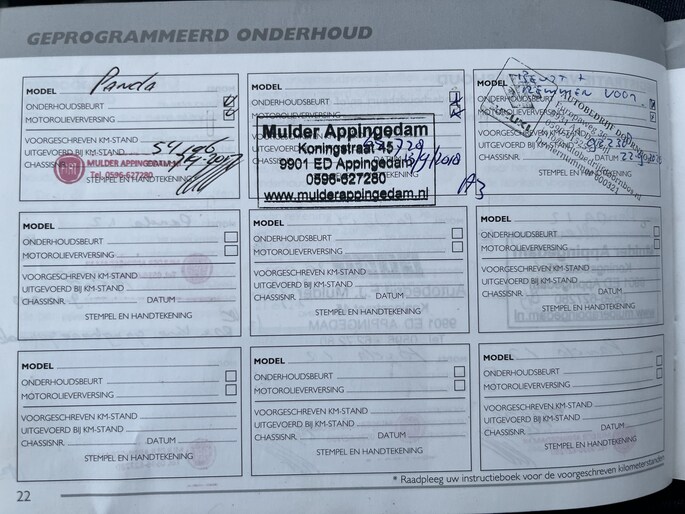 GEPROGRAMMEERD ONDERHOUD
MODEL Panda
ONDERHOUDSBEURT
MOTOROLIEVERVERSING
VOORGESCHREVEN KM-STAND
UITGEVOERD BIJ KM-STAND
CHASSISNR.
FIAT MULDER APPINGEDAM
Tel. 0596-627280
STEMPEL EN HANDTEKENING
MODEL
ONDERHOUDSBEURT
MOTOROLIEVERVERSING
Mulder Appingedam
Koningstraat 45
9901 ED Appingedam
0596-627280
www.mulderappingedam.nl
A3
MODEL BEURT +
REMMEN VOOR
ONDERHOUDSBEURT
MOTOROLIEVERVERSING
AUTOBEDRIJF
UITGEVOERD BIJ KM-STAND
CHASSISNR. DATUM
STEMPEL EN HANDTEKENING
MODEL
ONDERHOUDSBEURT
MOTOROLIEVERVERSING
VOORGESCHREVEN KM-STAND
UITGEVOERD BIJ KM-STAND
CHASSISNR. DATUM
STEMPEL EN HANDTEKENING
MODEL
ONDERHOUDSBEURT
MOTOROLIEVERVERSING
VOORGESCHREVEN KM-STAND
UITGEVOERD BIJ KM-STAND
CHASSISNR. DATUM
STEMPEL EN HANDTEKENING
MODEL
ONDERHOUDSBEURT
MOTOROLIEVERVERSING
VOORGESCHREVEN KM-STAND
UITGEVOERD BIJ KM-STAND
CHASSISNR. DATUM
STEMPEL EN HANDTEKENING
MODEL
ONDERHOUDSBEURT
MOTOROLIEVERVERSING
VOORGESCHREVEN KM-STAND
UITGEVOERD BIJ KM-STAND
CHASSISNR. DATUM
STEMPEL EN HANDTEKENING
MODEL
ONDERHOUDSBEURT
MOTOROLIEVERVERSING
VOORGESCHREVEN KM-STAND
UITGEVOERD BIJ KM-STAND
CHASSISNR. DATUM
STEMPEL EN HANDTEKENING
MODEL
ONDERHOUDSBEURT
MOTOROLIEVERVERSING
VOORGESCHREVEN KM-STAND
UITGEVOERD BIJ KM-STAND
CHASSISNR. DATUM
STEMPEL EN HANDTEKENING
* Raadpleeg uw instructieboek voor de voorgeschreven kilometerstanden
22